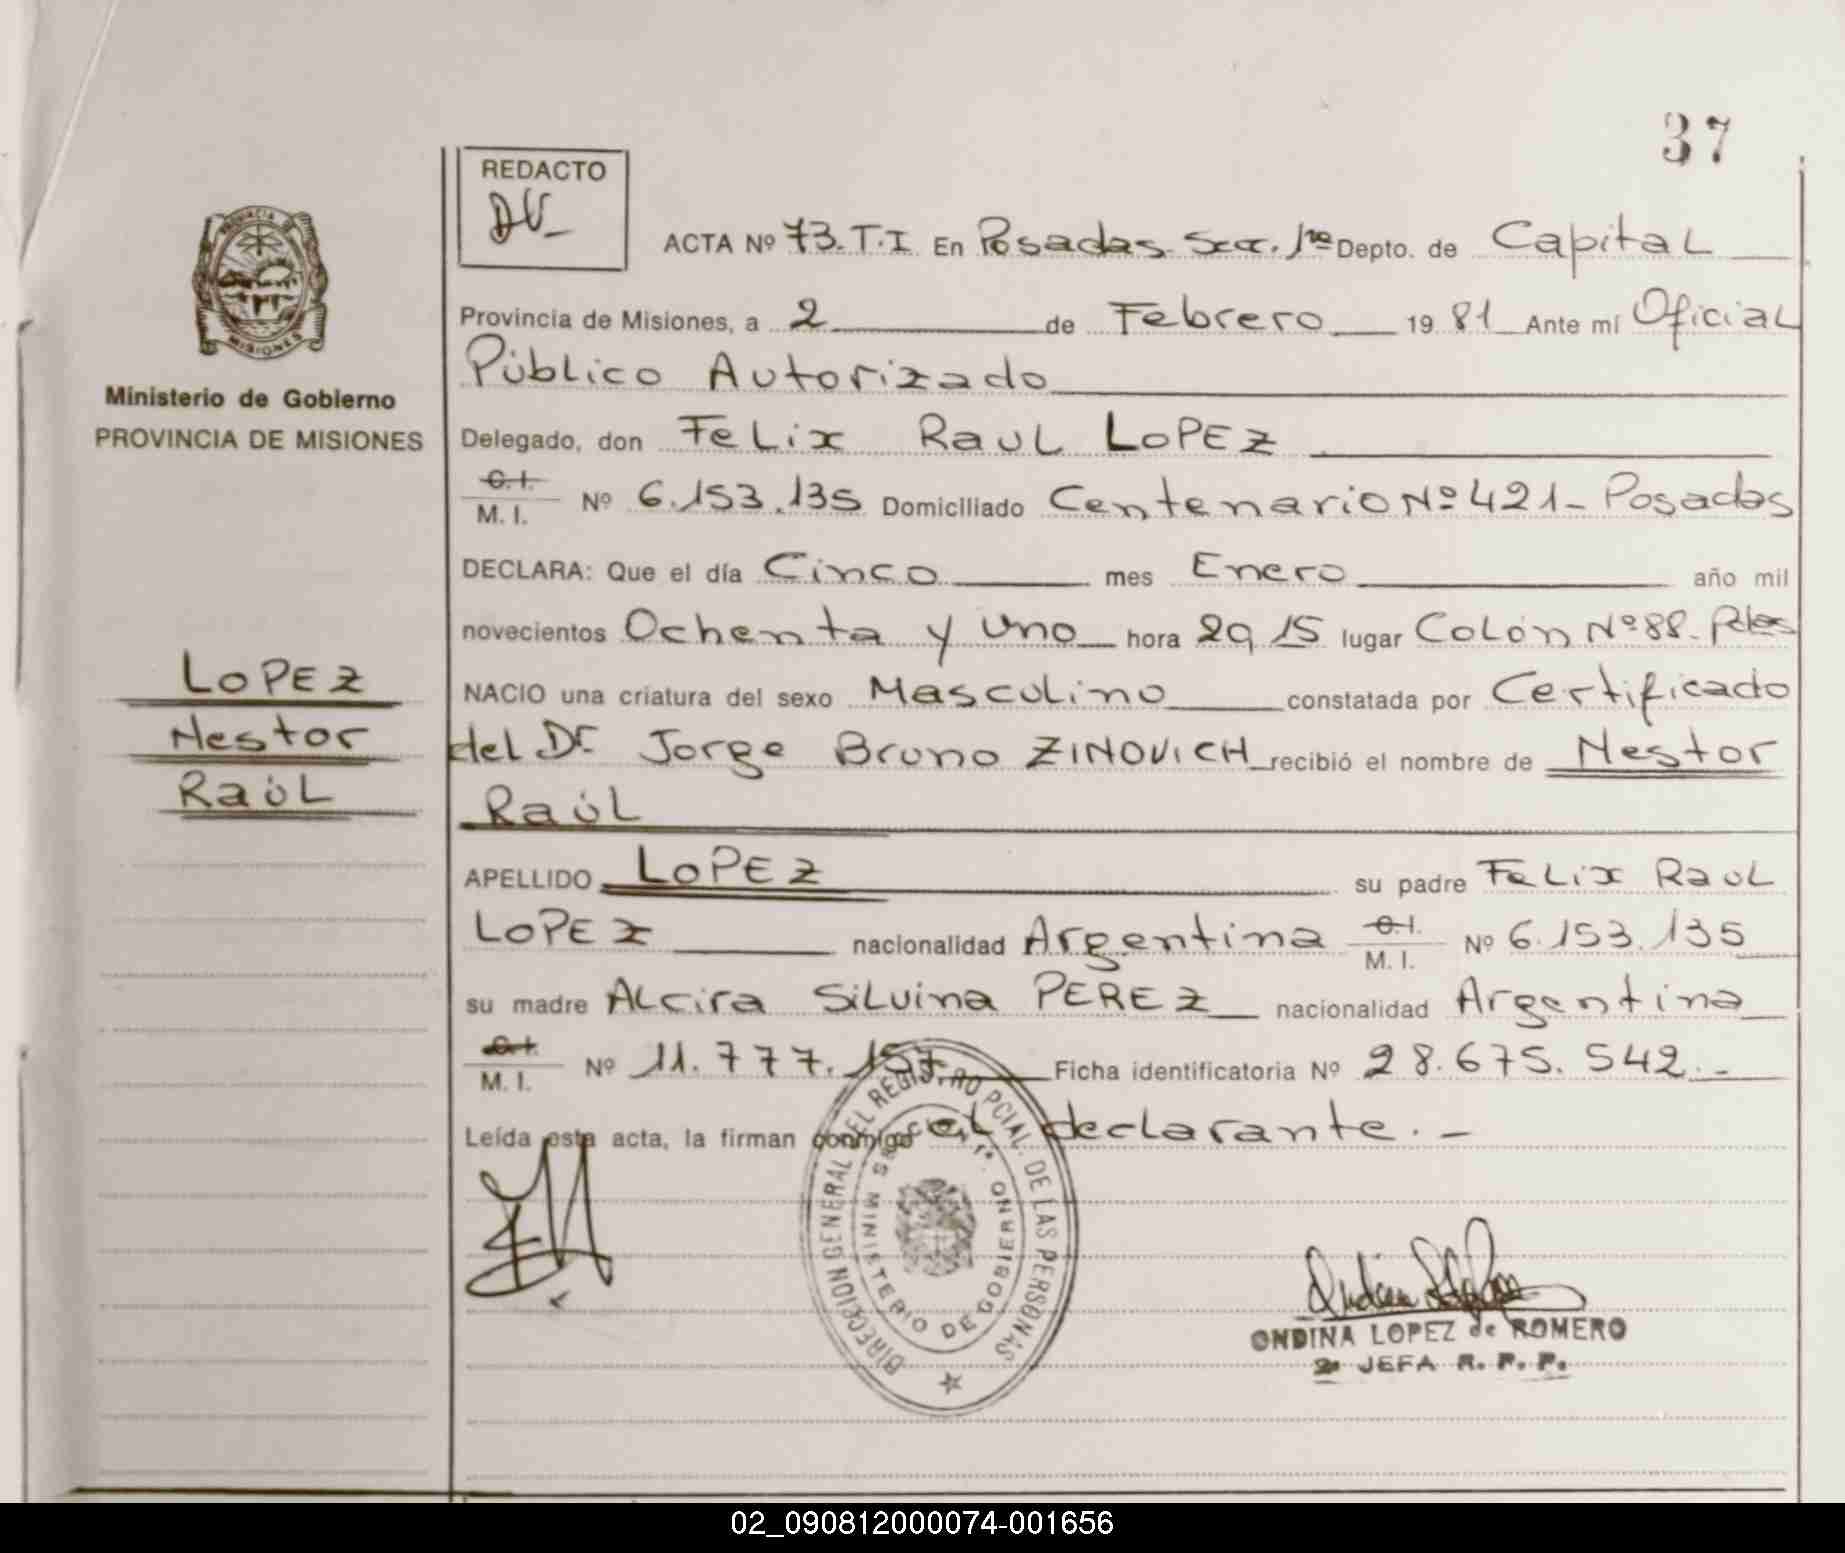 37
REDACTO
DV-
ACTA Nº 73.T.I En Posadas Secc. 1ra Depto. de Capital
PROVINCIA DE
MISIONES
Provincia de Misiones, a 2 de Febrero 19 81 Ante mí Oficial
Público Autorizado
Ministerio de Gobierno
PROVINCIA DE MISIONES
Delegado, don Felix Raul LOPEZ
C.I.
M. I. Nº 6.153.135 Domiciliado Centenario Nº 421- Posadas
DECLARA: Que el día Cinco mes Enero año mil
novecientos Ochenta y uno hora 20,15 lugar Colón Nº 88. Pdas
LOPEZ
Nestor
Raúl
NACIO una criatura del sexo Masculino constatada por Certificado
del Dr. Jorge Bruno ZINOVICH recibió el nombre de Nestor
Raúl
APELLIDO LOPEZ su padre Felix Raul
LOPEZ nacionalidad Argentina C.I.
M. I. Nº 6.153.135
su madre Alcira Silvina PEREZ nacionalidad Argentina
C.I.
M. I. Nº 11.777.157 Ficha identificatoria Nº 28.675.542.-
Leída esta acta, la firman conmigo el declarante.-
DIRECCION GENERAL DEL REGISTRO PCIAL. DE LAS PERSONAS
SECCION 1º.
MINISTERIO DE GOBIERNO
ONDINA LOPEZ de ROMERO
2º JEFA R. P. P.
02_090812000074-001656